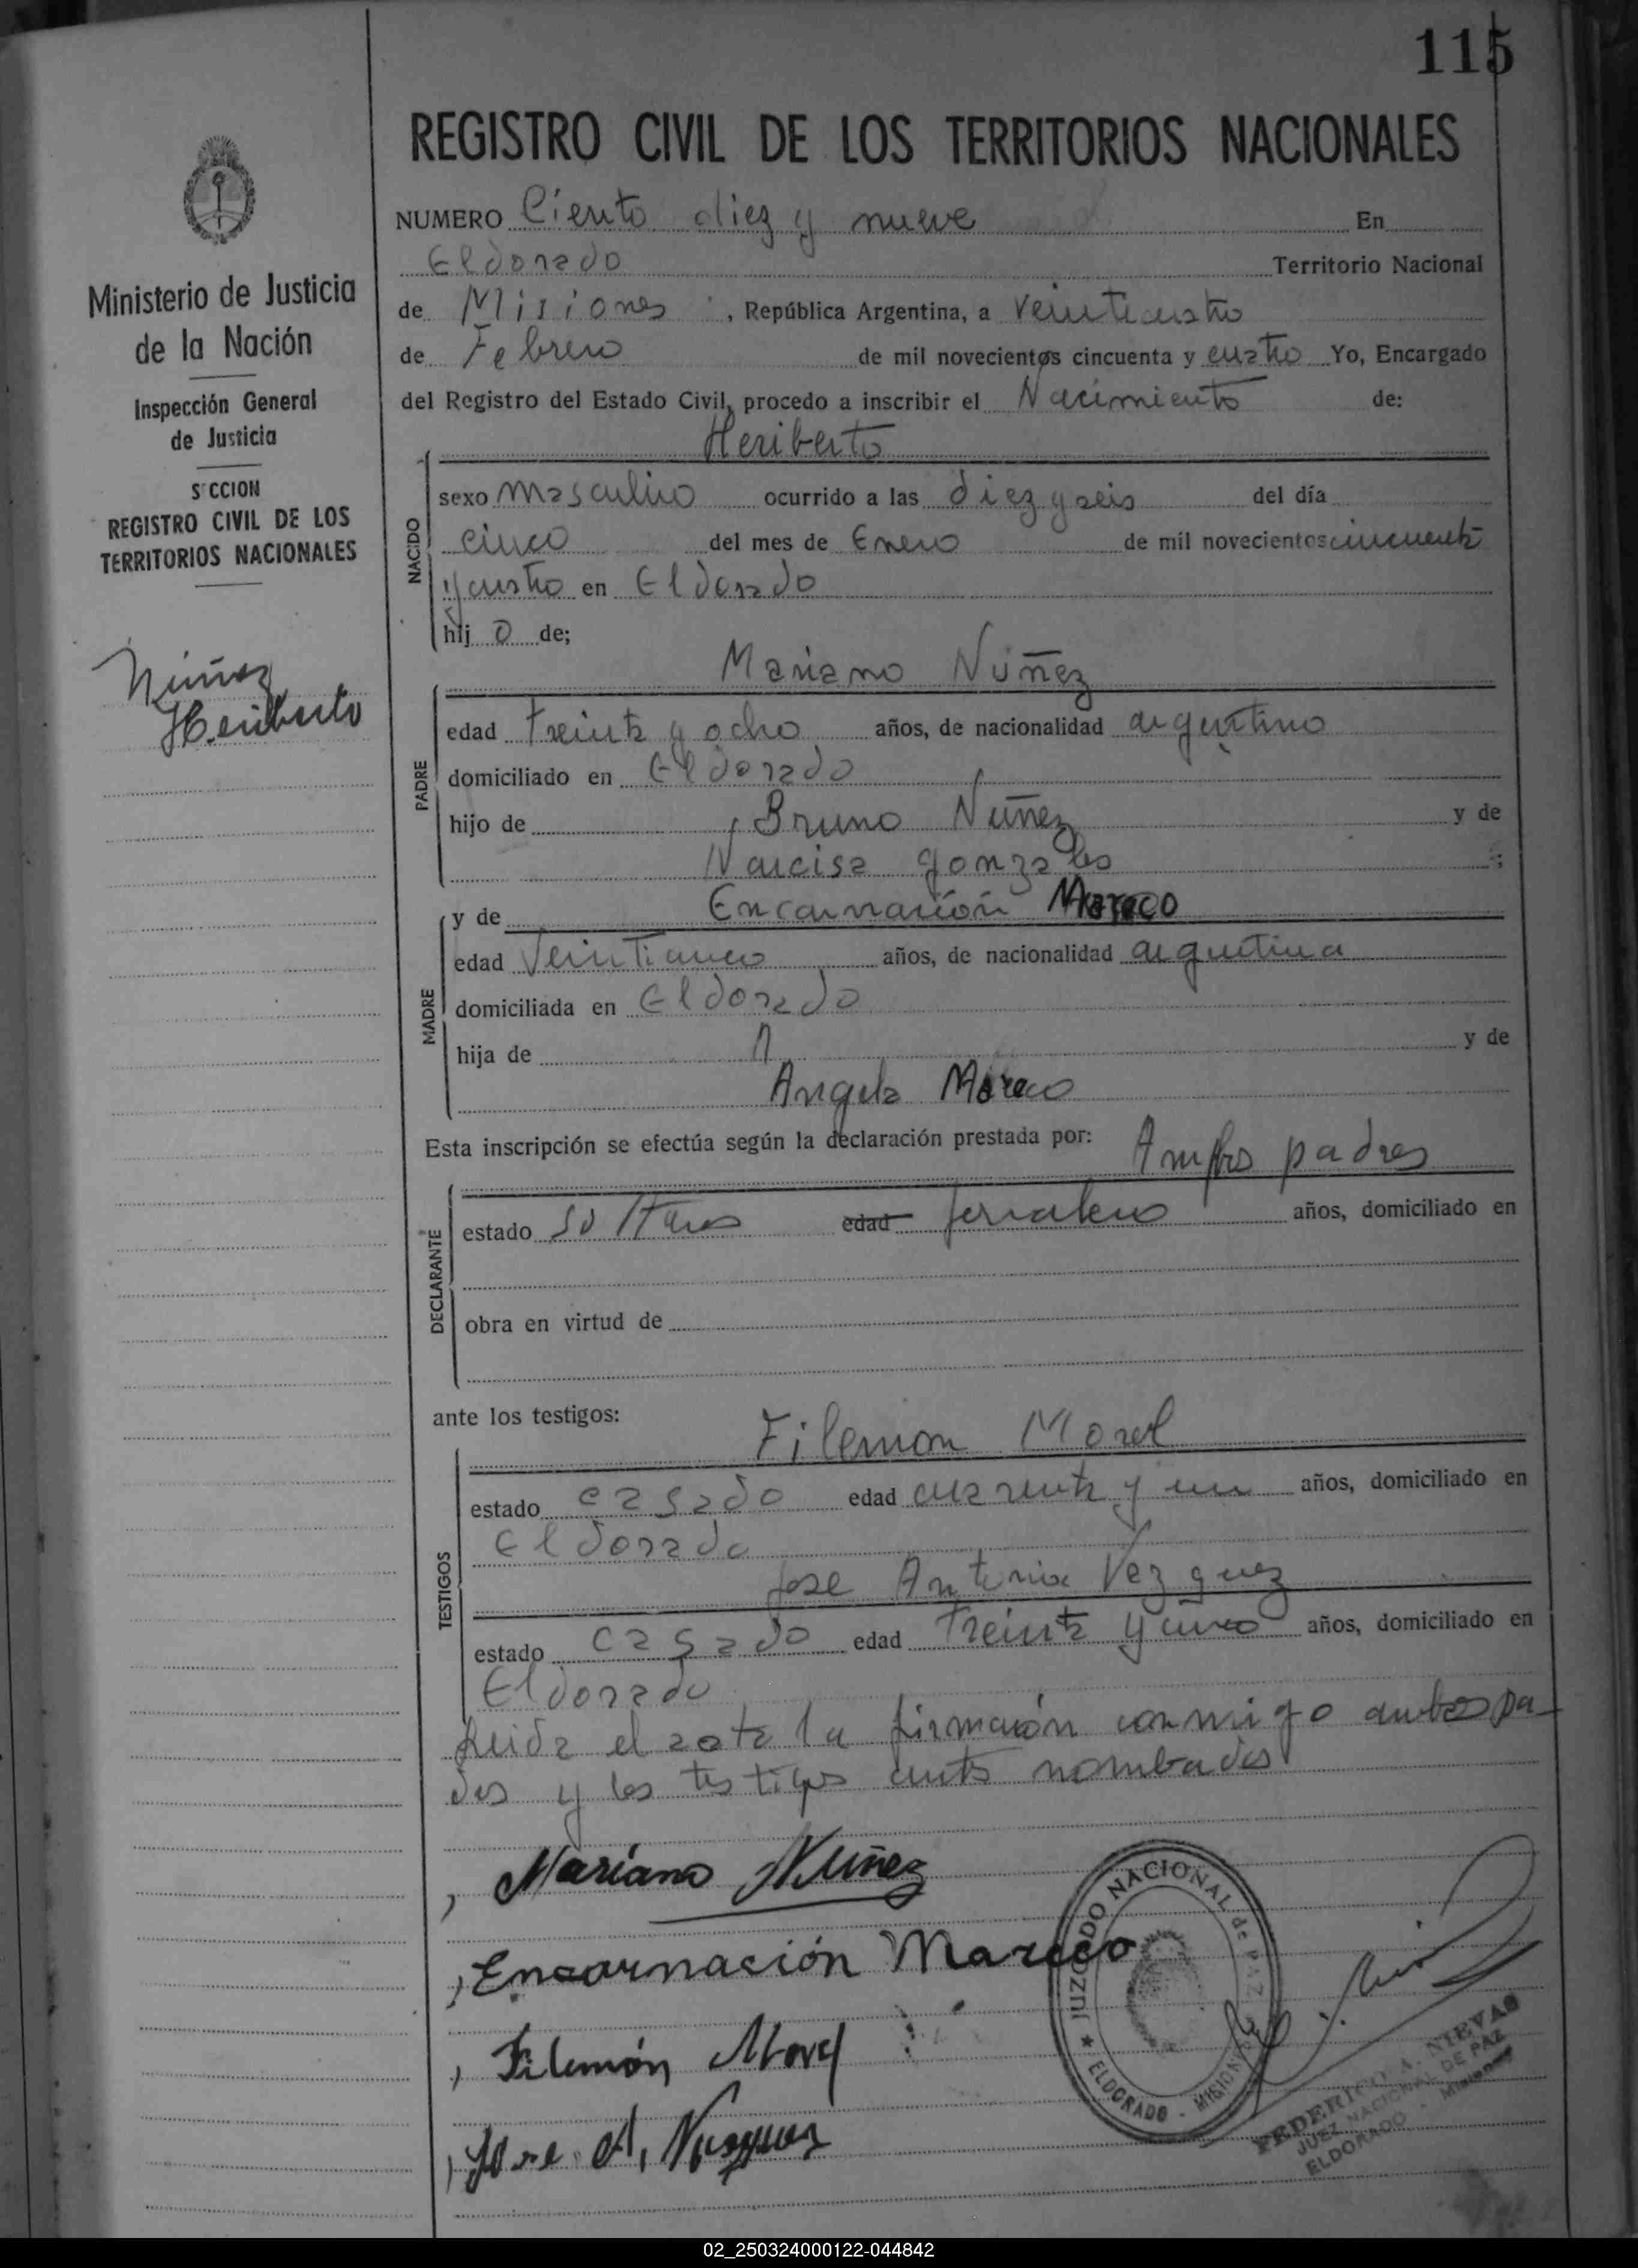 115
REGISTRO CIVIL DE LOS TERRITORIOS NACIONALES
Ministerio de Justicia
de la Nación
Inspección General
de Justicia
S CCION
REGISTRO CIVIL DE LOS
TERRITORIOS NACIONALES
Núñez
Heriberto
NUMERO Ciento diez y nueve En
Eldorado Territorio Nacional
de Misiones, República Argentina, a veinticuatro
de Febrero de mil novecientos cincuenta y cuatro Yo, Encargado
del Registro del Estado Civil, procedo a inscribir el Nacimiento de:
Heriberto
NACIDO
sexo masculino ocurrido a las diez y seis del día
cinco del mes de Enero de mil novecientos cincuenta
y cuatro en Eldorado
hij o de;
Mariano Núñez
PADRE
edad treinta y ocho años, de nacionalidad argentino
domiciliado en Eldorado
hijo de Bruno Núñez y de
Narcisa Gonzales ;
y de Encarnación Mareco
MADRE
edad Veinticinco años, de nacionalidad argentina
domiciliada en Eldorado
hija de y de
Angela Mareco
Esta inscripción se efectúa según la declaración prestada por: Ambos padres
DECLARANTE
estado solteros edad jornalero años, domiciliado en
obra en virtud de
ante los testigos:
Filemon Morel
TESTIGOS
estado casado edad cuarenta y un años, domiciliado en
Eldorado
Jose Antonio Vezquez
estado casado edad treinta y cinco años, domiciliado en
Eldorado
Leida el acta la firmación conmigo ambos pa-
des y los testigos ants nombrados
Mariano Núñez
Encarnación Mareco
Filemón Morel
Jose A. Vazquez
JUZGADO NACIONAL de PAZ
★ ELDORADO - MISIONES
FEDERICO A. NIEVAS
JUEZ NACIONAL DE PAZ
ELDORADO - Misiones
02_250324000122-044842